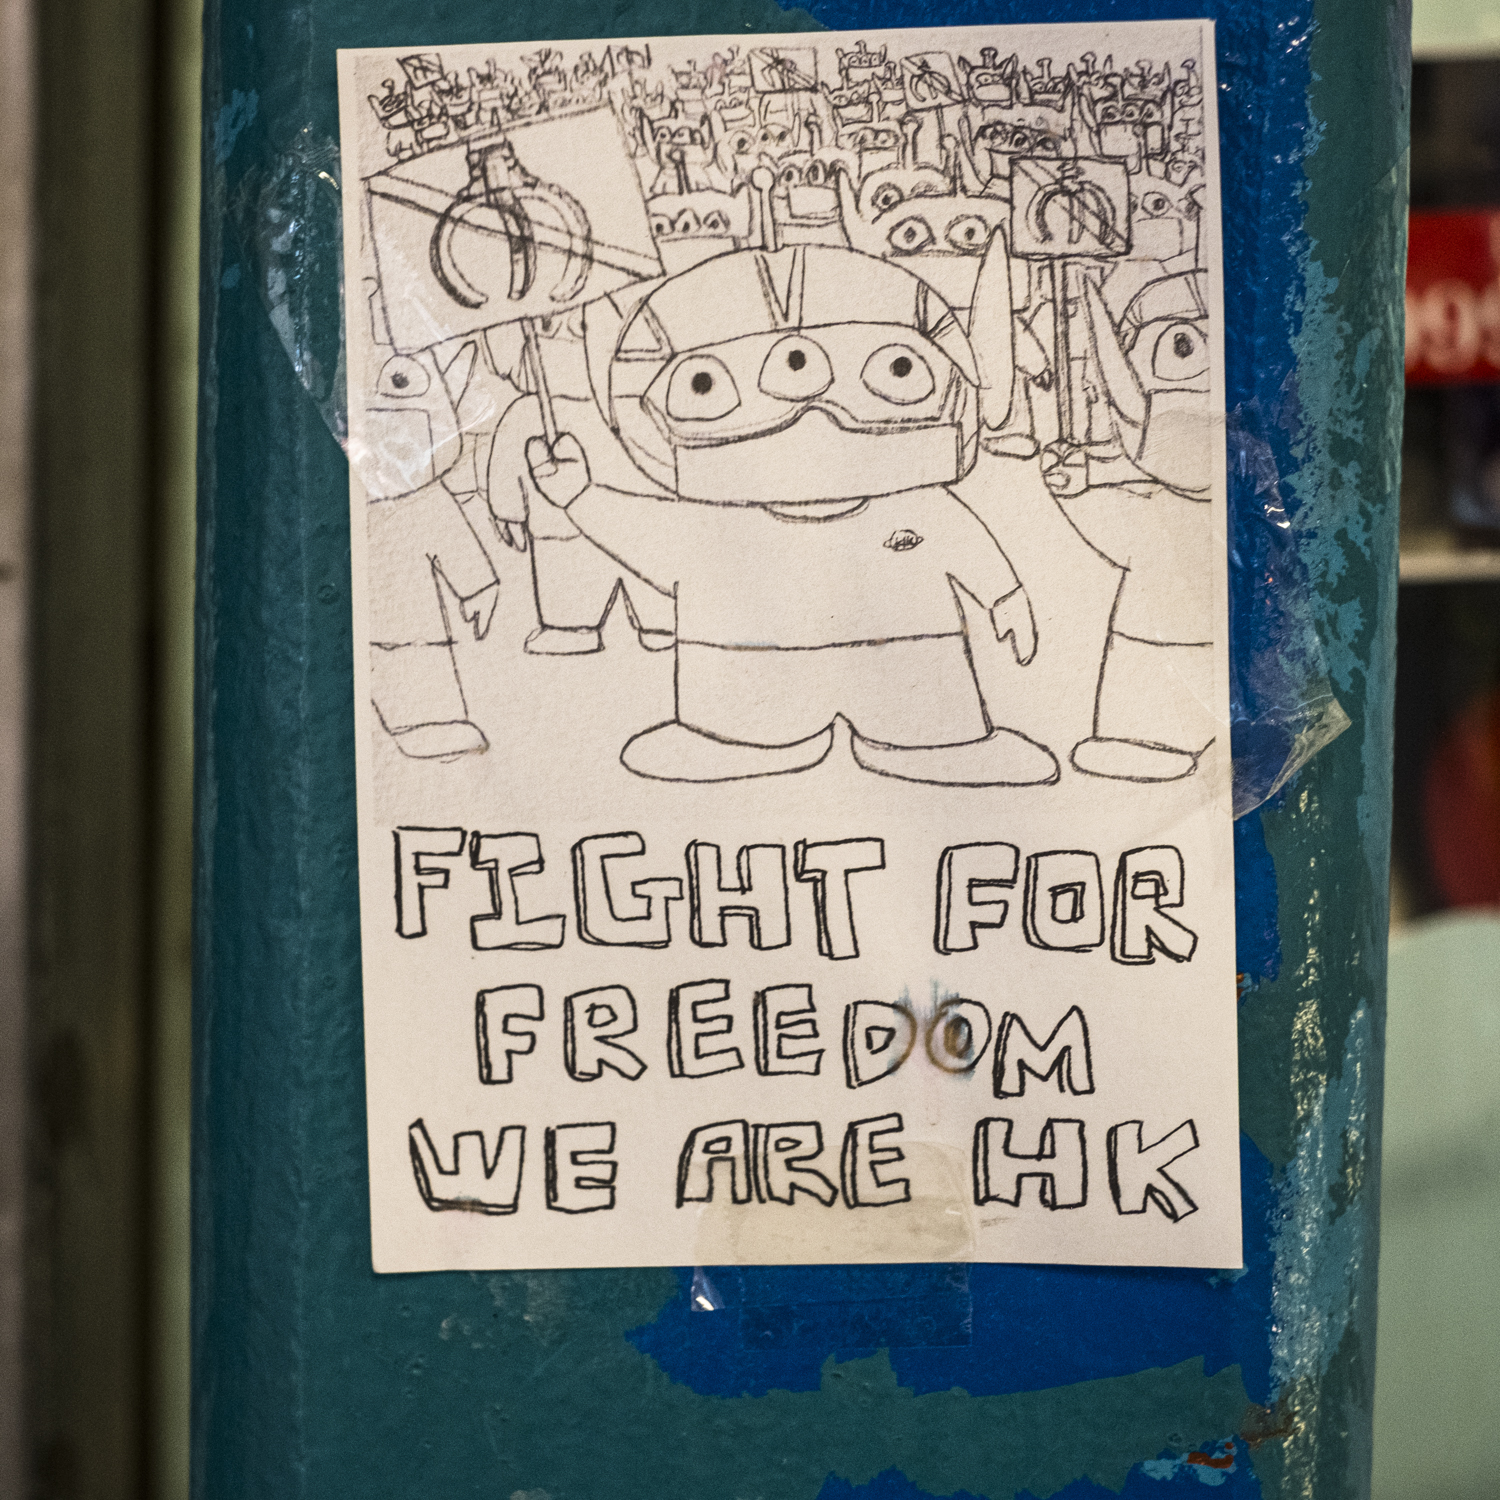 FIGHT FOR
FREEDOM
WE ARE HK